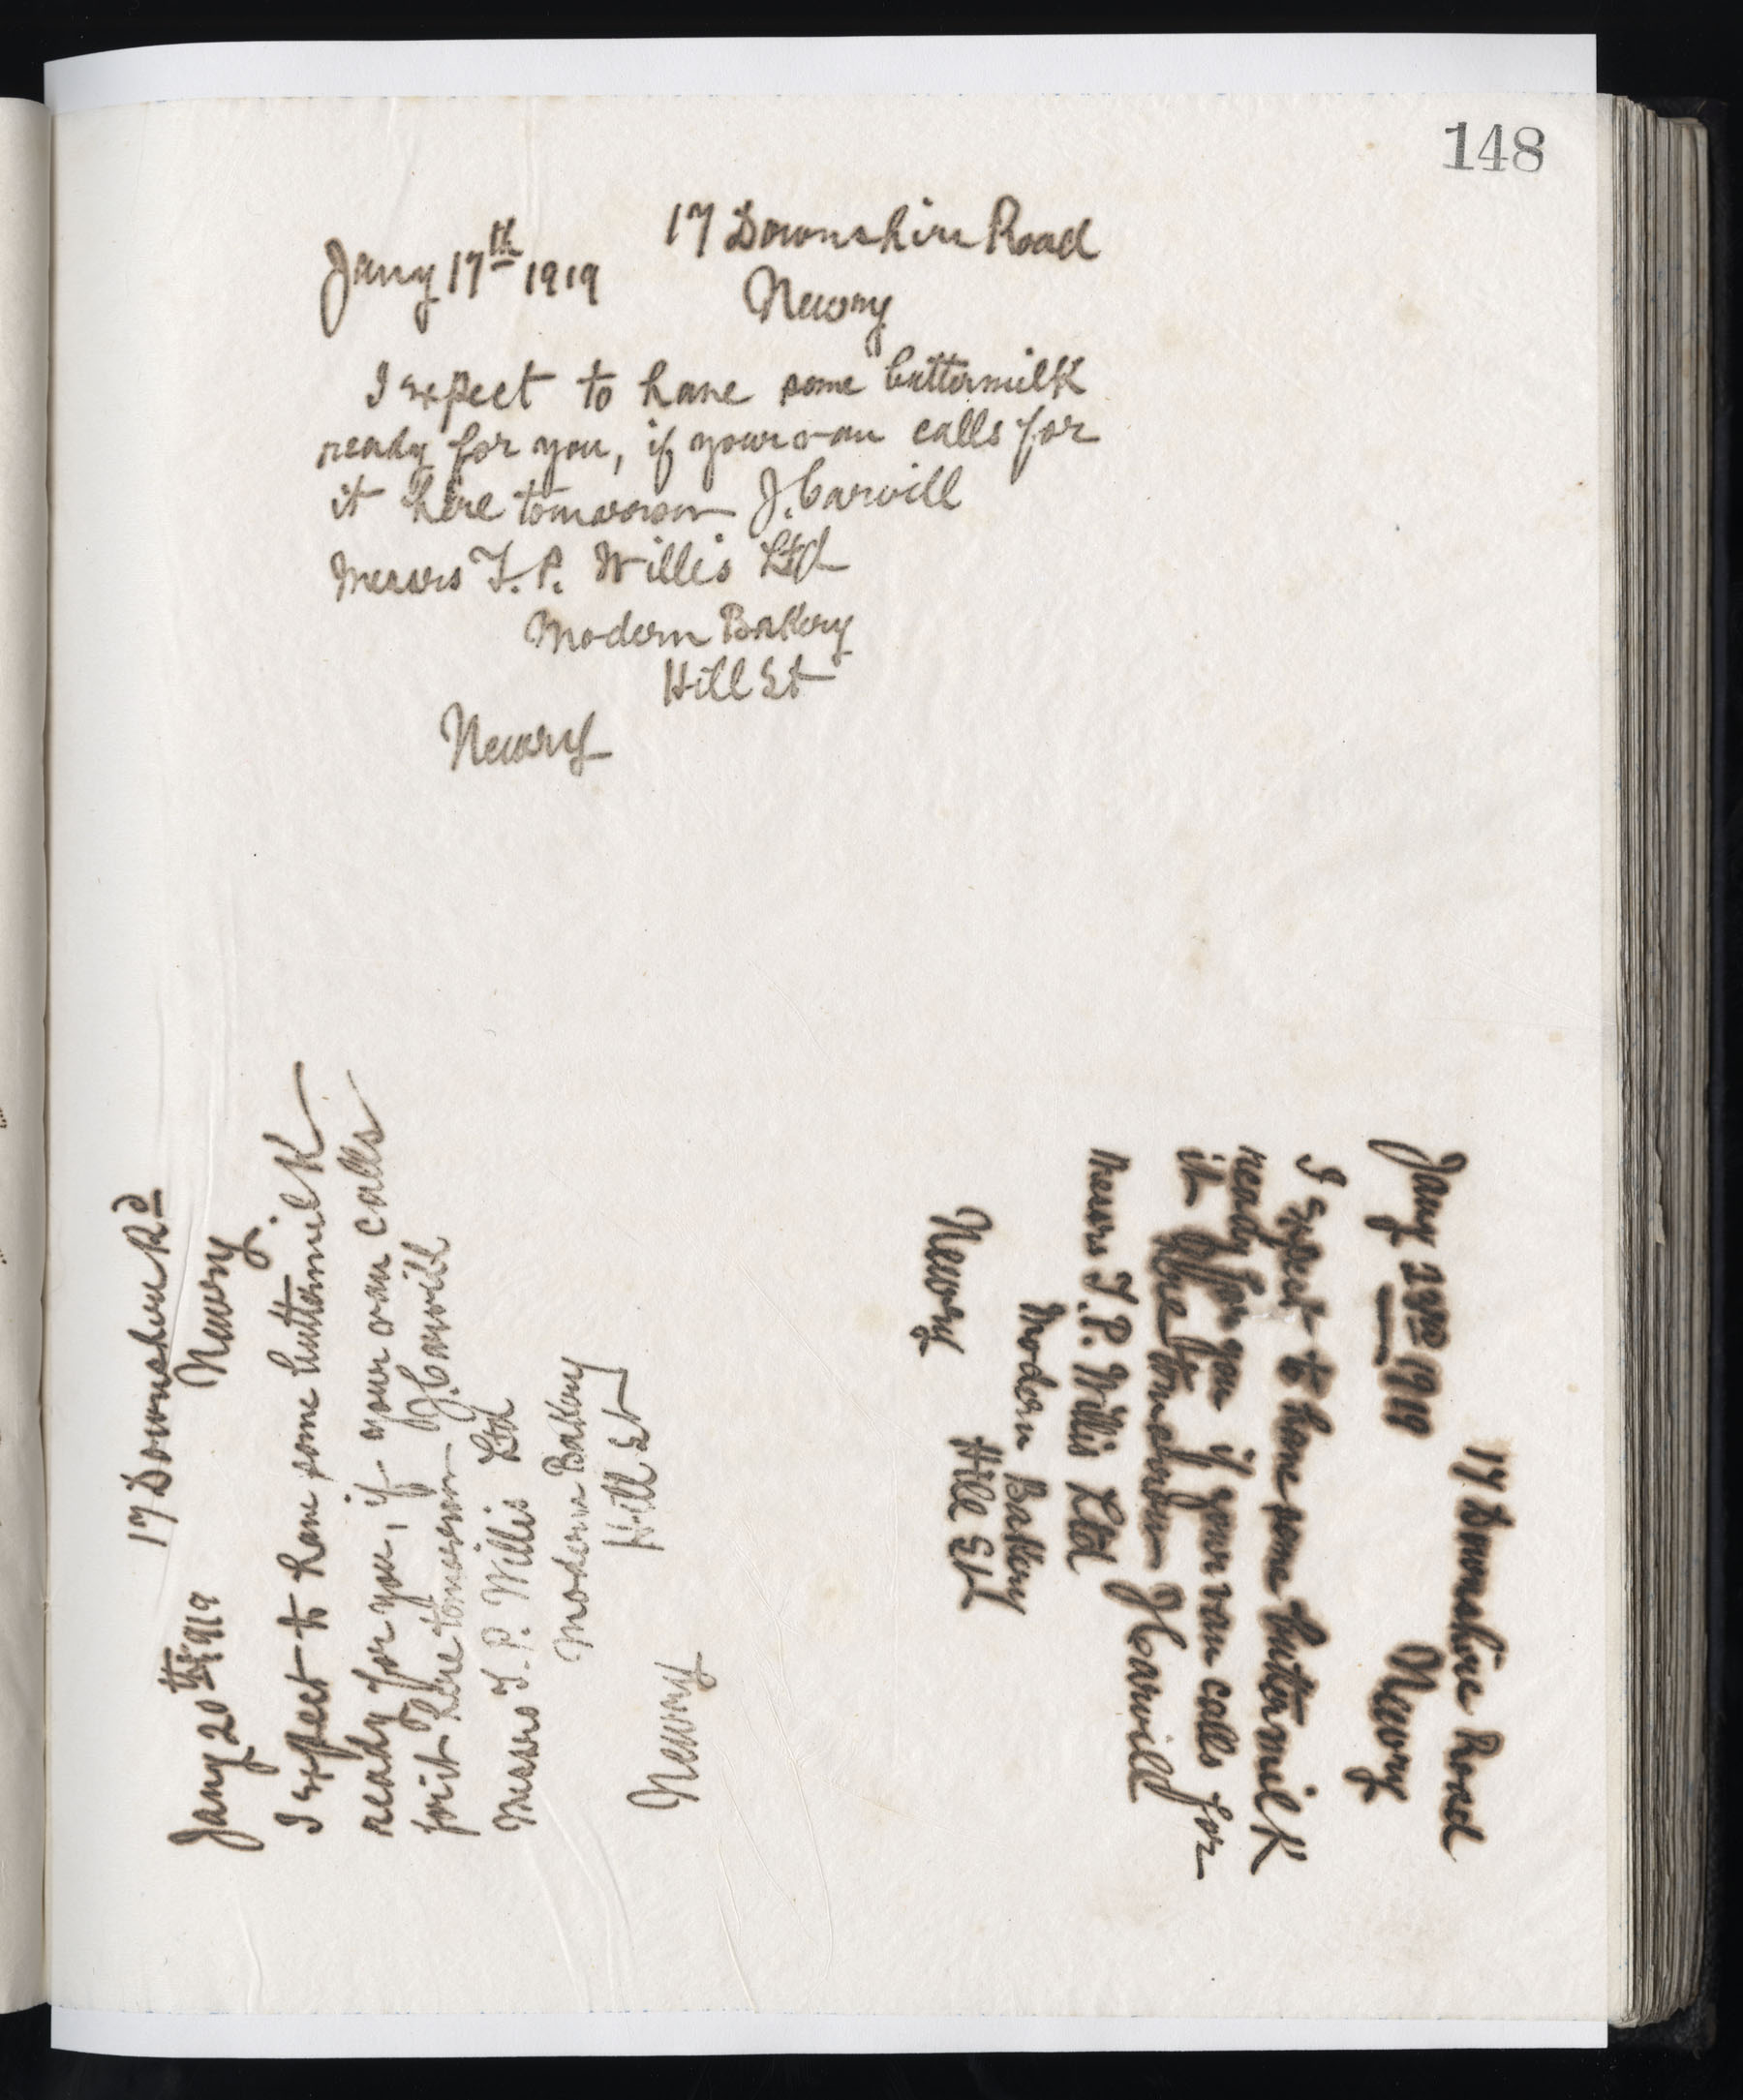 148
17 Downshire Road
Jany 17th 1919
Newry
I expect to have some buttermilk
ready for you, if your van calls for
it here tomorrow J. Carvill
Messrs T. P. Willis Ltd
Modern Bakery
Hill St
Newry
17 Downshire Rd
Jany 20th 1919 Newry
I expect to have some buttermilk
ready for you, if your van calls
for it here tomorrow J. Carvill
Messrs T. P. Willis Ltd
Modern Bakery
Hill St
Newry
17 Downshire Road
Jany 23rd 1919 Newry
I expect to have some buttermilk
ready for you if your van calls for
it here tomorrow J Carvill
Messrs T. P. Willis Ltd
Modern Bakery
Hill St
Newry